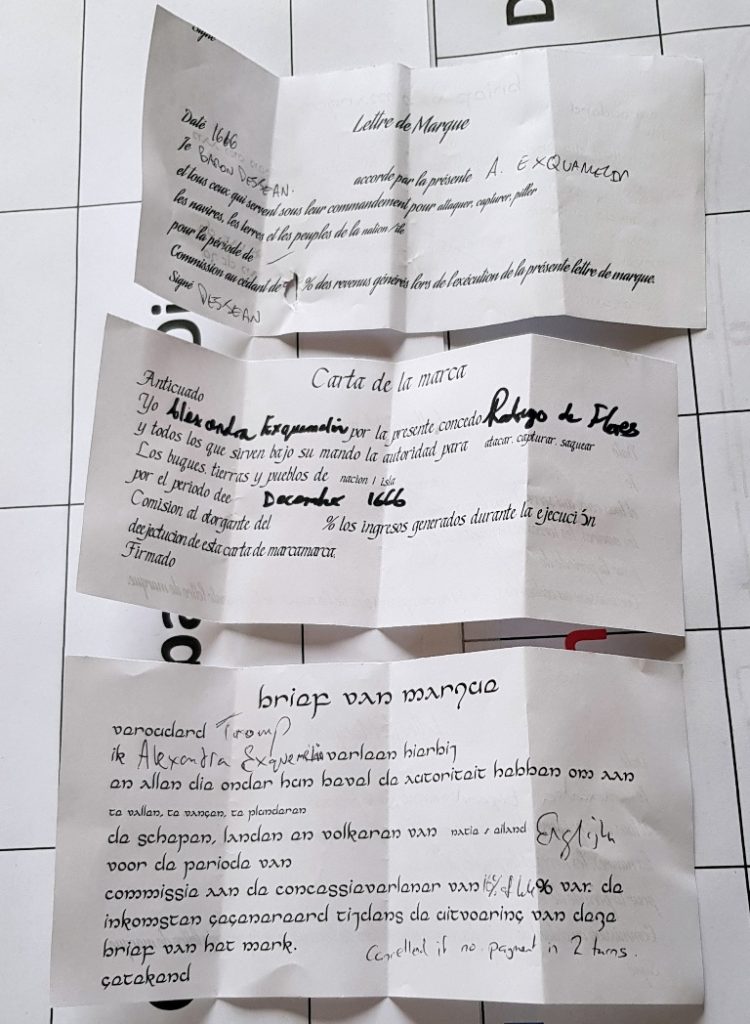 Signé
Lettre de Marque
Daté 1666
Je BARON DESSEAN. accorde par la présente A. EXQUAMELIN
et tous ceux qui servent sous leur commandement pour attaquer, capturer, piller
les navires, les terres et les peuples de la nation/île
pour la période de
Commission au cédant de % des revenus générés lors de l'exécution de la présente lettre de marque.
Signé DESSEAN
Carta de la marca
Anticuado
Yo Alexandra Exquemelin por la presente concedo Rodrygo de Flores
y todos los que sirven bajo su mando la autoridad para atacar, capturar, saquear
Los buques, tierras y pueblos de nacion / isla
por el periodo dee Decembre 1666
Comision al otorgante del % los ingresos generados durante la ejecución
deejectucion de esta carta de marcamarca.
Firmado
brief van marque
verouderd Tromp
ik Alexandra Exquemelin verleen hierbij
en allen die onder hen bevel de autoriteit hebben om aan
te vallen, te vangen, te plunderen
de schepen, landen en volkeren van natie / eiland English
voor de periode van
commissie aan de concessieverlener van % van de
inkomsten gegenereerd tijdens de uitvoering van deze
brief van het merk. Cancelled if no payment in 2 turns.
getekend